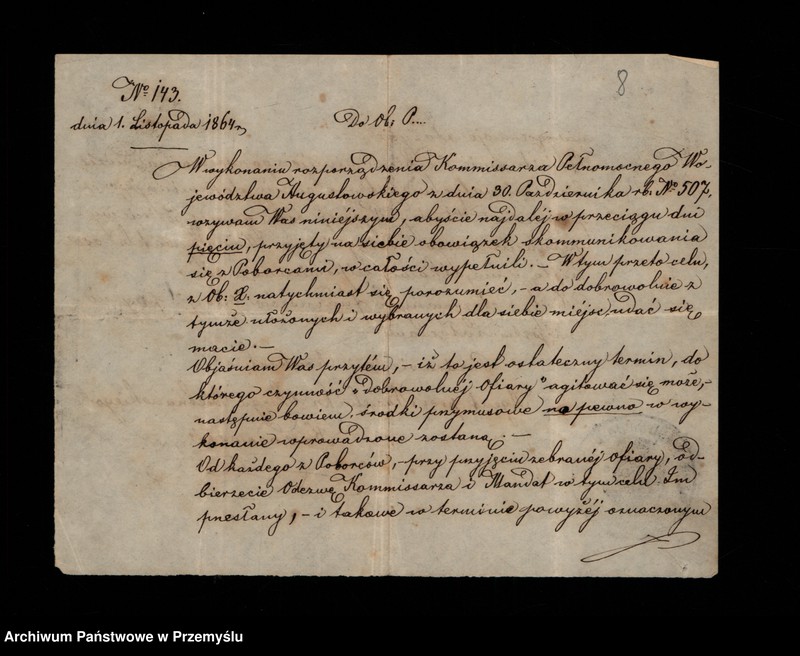 8
No 143.
dnia 1. Listopada 1864 r.
Do Ob: P....
W wykonaniu rozporządzenia Kommissarza Pełnomocnego Wo-
jewództwa Augustowskiego z dnia 30. Października rb. No 507,
wzywam Was niniéjszym, abyście najdaléj w przeciągu dni
pięciu, przyjęty na siebie obowiązek skommunikowania
się z Poborcami, w całości wypełnili. — W tym przeto celu,
z Ob: X. natychmiast się porozumieć, – a do dobrowolnie z
tymże ułożonych i wybranych dla siebie miéjsc, udać się
macie. —
Objaśniam Was przytém, – iż to jest ostateczny termin, do
którego czynność "dobrowolnéj Ofiary" agitować się może, –
następnie bowiem, środki przymusowe na pewno w wy-
konanie wprowadzone zostaną. —
Od każdego z Poborców, – przy przyjęciu zebranéj ofiary, od-
bierzecie Odezwę Kommissarza i Mandat w tym celu Im
przesłany, – i takowe w terminie powyżéj oznaczonym
Archiwum Państwowe w Przemyślu